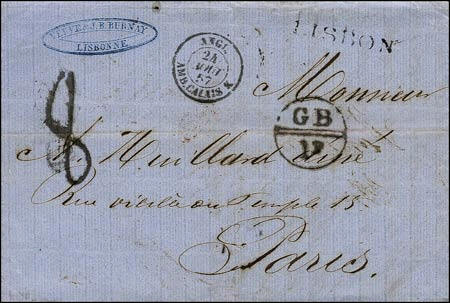 VEUVE J.B. BURNAY
LISBONNE
ANGL.
24
AOUT
57
AMB. CALAIS K
LISBON
Monsieur
8
GB
1F
A. Heuillard ainé
Rue vieille du Temple 15
Paris.